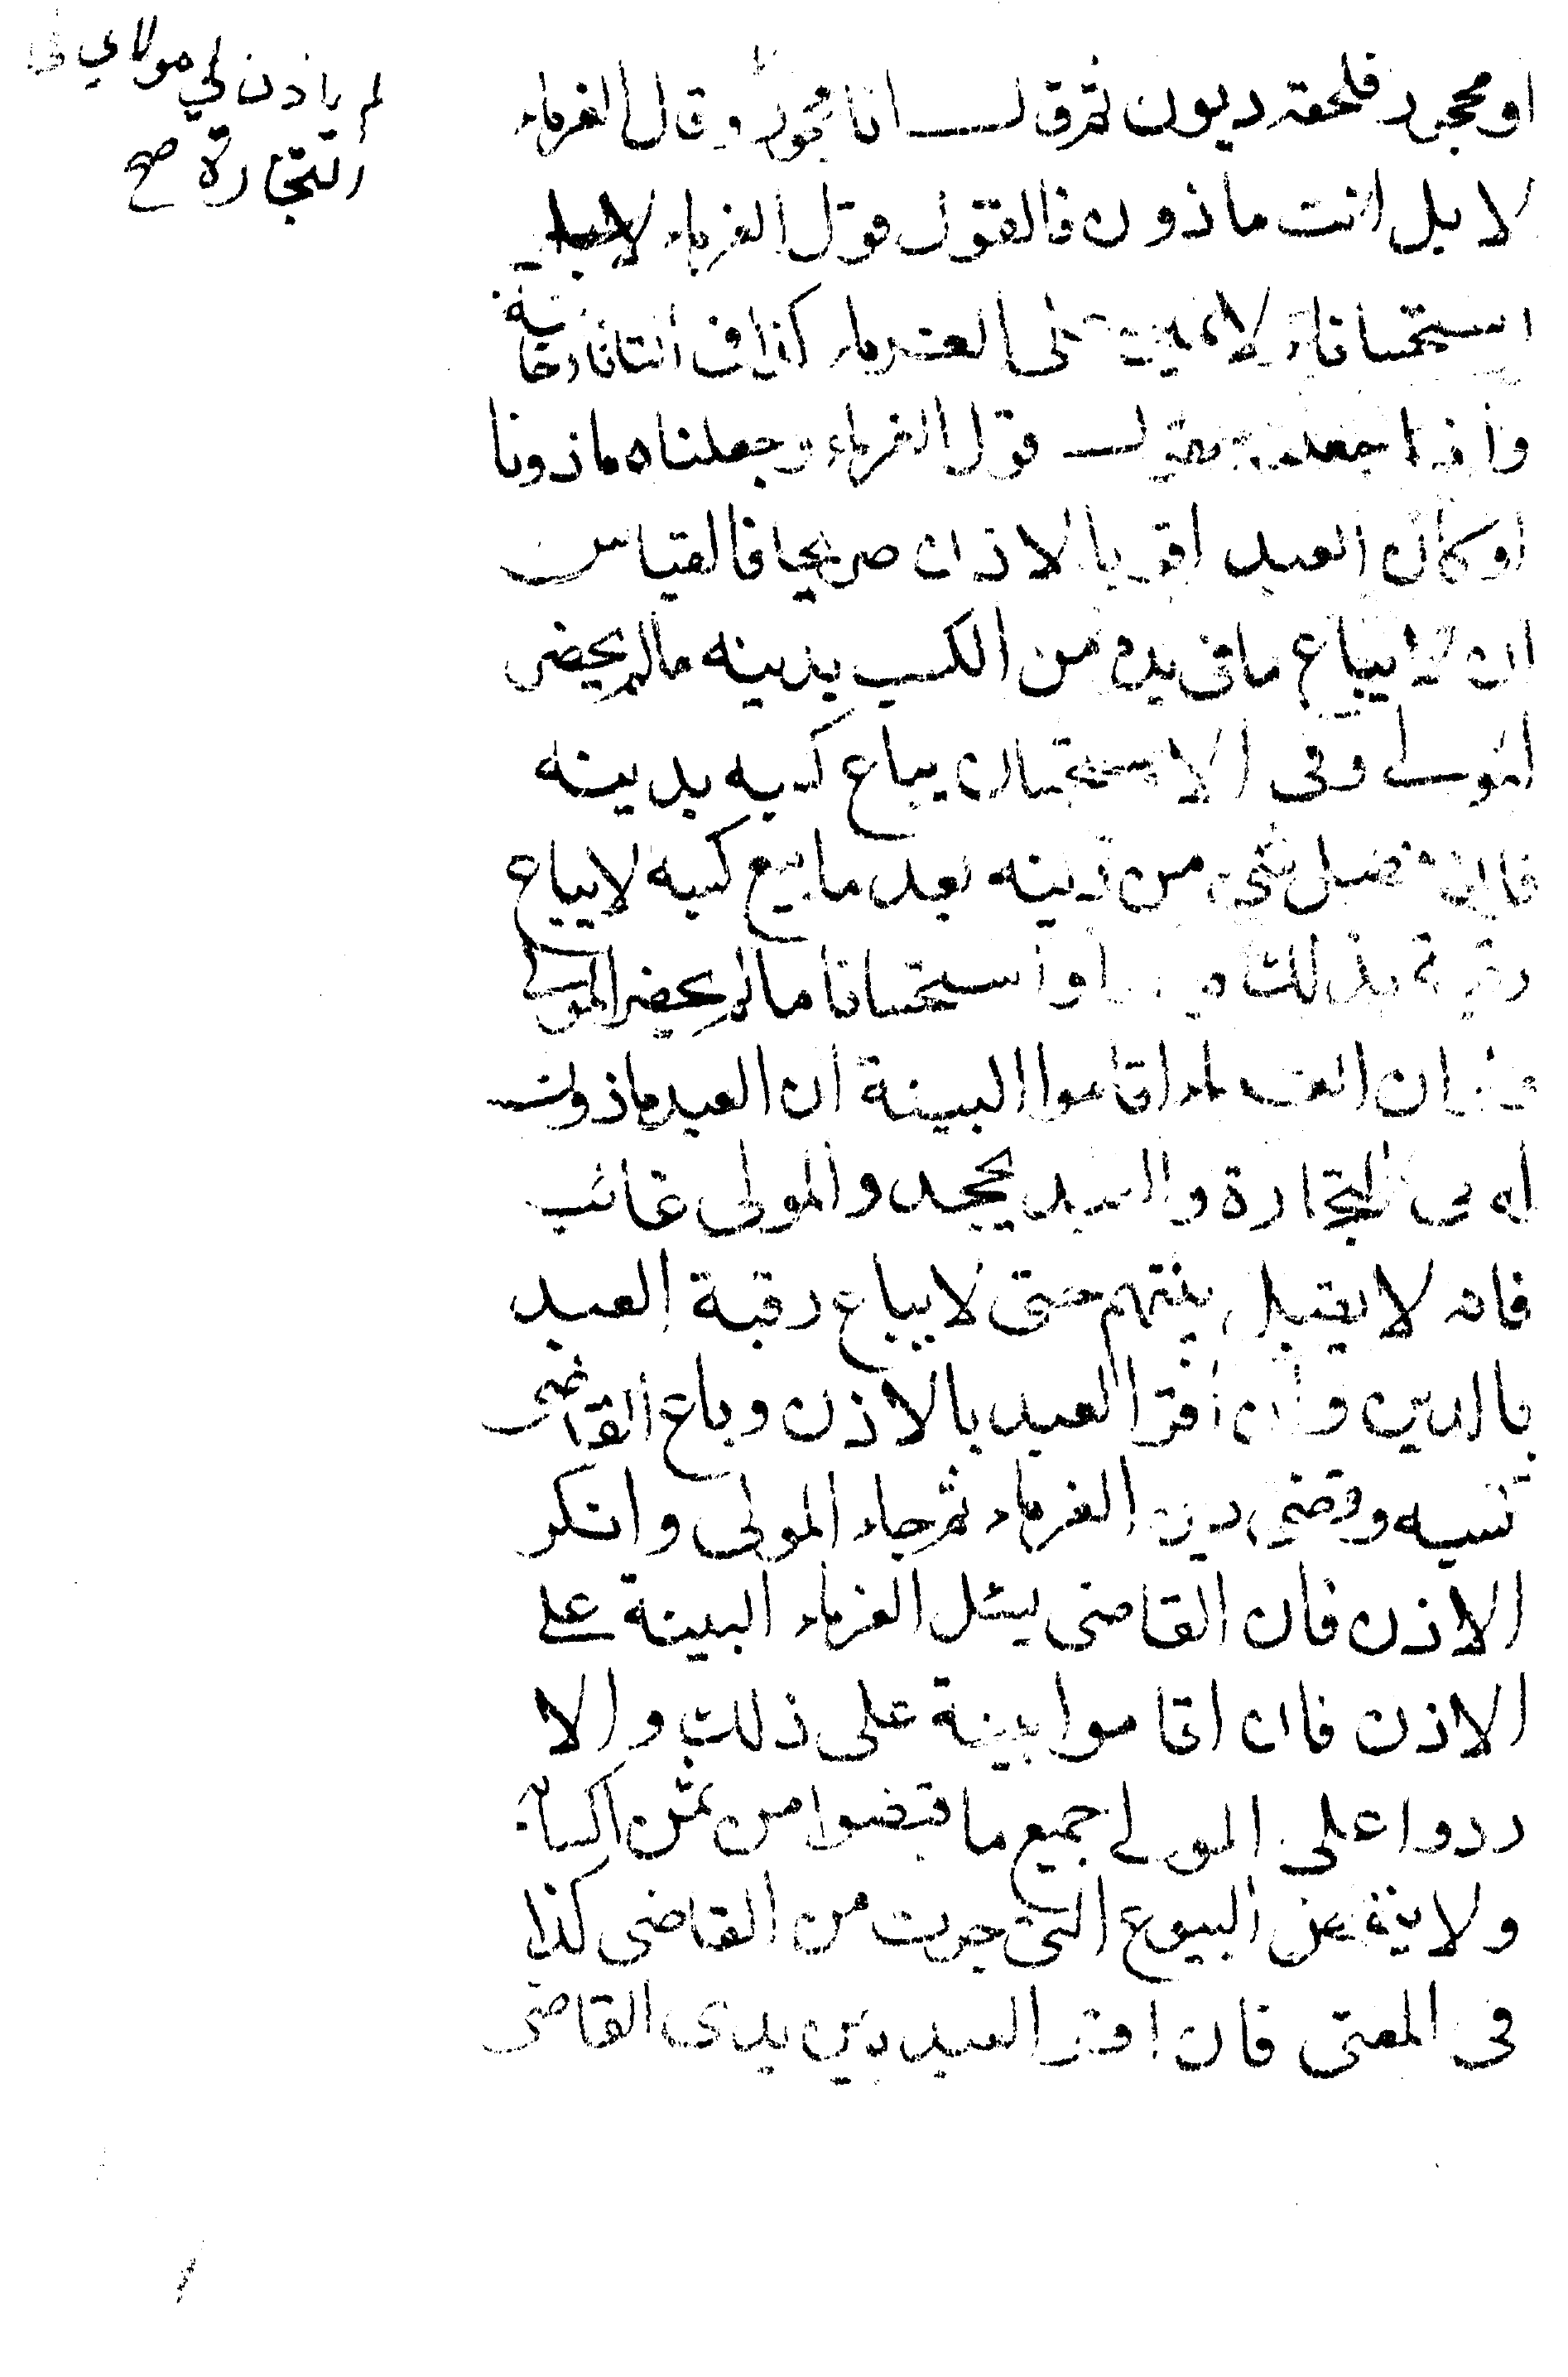 او محجور فلحقه ديون ثم قال انا محجور وقال الغرماء
لا بل انت ماذون فالقول قول الغرماء
استحسانا ولا يمين على الغرماء كذا في التاتارخانية
واذا جعلنا القول قول الغرماء وجعلناه ماذونا
او كان العبد اقر بالاذن صريحا فالقياس
ان لا يباع ما في يده من الكسب بدينه ما لم يحضر
المولى وفي الاستحسان يباع كسبه بدينه
فان فضل شيء من دينه بعد ما بيع كسبه لا يباع
رقبته بذلك استحسانا ما لم يحضر المولى
ان الغرماء اقاموا البينة ان العبد ماذون
له في التجارة والعبد يجحد والمولى غائب
فانه لا يقبل بينتهم حتى لا يباع رقبة العبد
بالدين وان اقر العبد بالاذن وباع القاضي
كسبه وقضى دين الغرماء ثم جاء المولى وانكر
الاذن فان القاضي يسئل الغرماء البينة على
الاذن فان اقاموا بينة على ذلك والا
ردوا على المولى جميع ما قبضوا من ثمن اكسابه
ولا ينقض البيوع التي جرت من القاضي كذا
في المغني فان اقر العبد بين يدي القاضي
لم ياذن لي مولاي في
التجارة صح